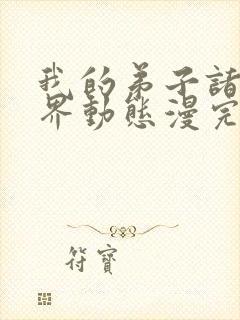 我的弟子諸
界動態漫完
符寶